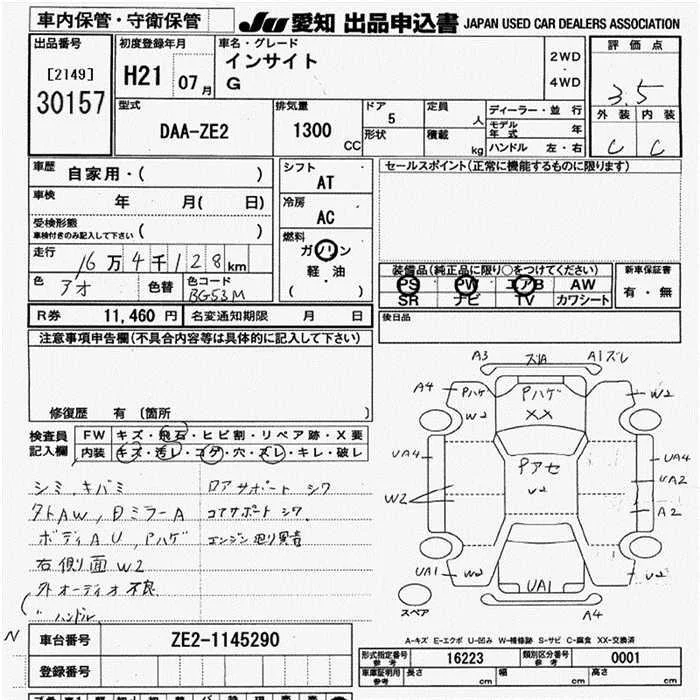 車内保管・守衛保管
JU 愛知 出品申込書 JAPAN USED CAR DEALERS ASSOCIATION
出品番号
[2149]
30157
初度登録年月
H21 07月
車名・グレード
インサイト
G
2WD
・
4WD
評価点
3.5
外装 内装
C C
型式
DAA-ZE2
排気量
1300 CC
ドア
5
形状
定員 人
積載 kg
ディーラー・並行
モデル年式 年
ハンドル 左・右
車歴 自家用・( )
車検 年 月( 日)
受検形態
車検付きのみ記入して下さい ( )
走行 16万4千128km
色 アオ 色替 色コード BG53M
シフト
AT
冷房
AC
燃料
ガソリン
・
軽・油
( )
セールスポイント(正常に機能するものに限ります)
装備品(純正品に限り○をつけてください)
PS PW エアB AW
SR ナビ TV カワシート
新車保証書
有・無
後日品
R券 11,460 円 名変通知期限 月 日
注意事項申告欄(不具合内容等は具体的に記入して下さい)
修復歴 有 (箇所 )
検査員
記入欄
FW キズ・飛石・ヒビ割・リペア跡・X要
内装 キズ・汚レ・コゲ・穴・スレ・キレ・破レ
シミ,キバミ
外AW,Dミラー A
ボディAU,Pハゲ
右側面W2
外オーディオ不良
( " ハンドル
ロアサポート シワ
コアサポート シワ
エンジン廻り異音
A3 ズレA A1ズレ
A4 Pハゲ W2
W2 XX
UA4 Pアセ UA4
W2 UA2
W2 A2
UA1 W2 UA1 W2
スペア A4
A-キズ E-エクボ U-凹み W-補修跡 S-サビ C-腐食 XX-交換済
N
車台番号 ZE2-1145290
登録番号
型式指定番号
参考
16223
類別区分番号
参考
0001
車庫証明用
参考
長さ cm 幅 cm 高さ cm